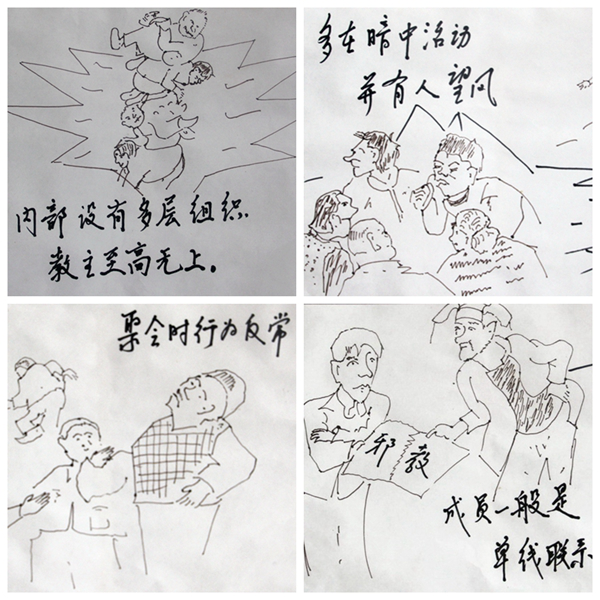 内部设有多层组织
教主至高无上。
多在暗中活动
并有人望风
聚会时行为反常
邪教
成员一般是
单线联系